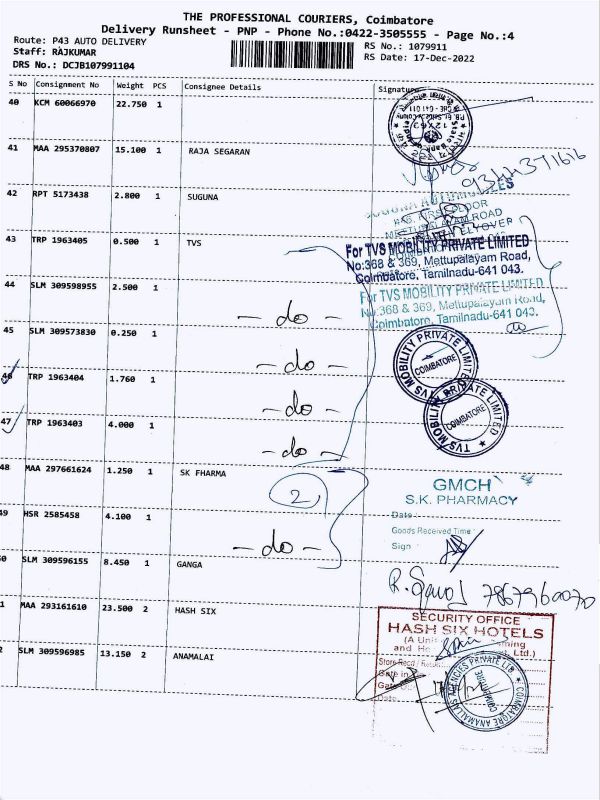 THE PROFESSIONAL COURIERS, Coimbatore
Delivery Runsheet - PNP - Phone No.:0422-3505555 - Page No.:4
Route: P43 AUTO DELIVERY
RS No.: 1079911
Staff: RAJKUMAR
RS Date: 17-Dec-2022
DRS No.: DCJB107991104
S No Consignment No Weight PCS Consignee Details Signature
40 KCM 60066970 22.750 1
41 MAA 295370807 15.100 1 RAJA SEGARAN
42 RPT 5173438 2.800 1 SUGUNA
43 TRP 1963405 0.500 1 TVS
For TVS MOBILITY PRIVATE LIMITED
No:368 & 369, Mettupalayam Road,
Coimbatore, Tamilnadu-641 043.
44 SLM 309598955 2.500 1
- do -
For TVS MOBILITY PRIVATE LIMITED
No:368 & 369, Mettupalayam Road,
Coimbatore, Tamilnadu-641 043.
45 SLM 309573830 0.250 1
- do -
TVS MOBILITY PRIVATE LIMITED
COIMBATORE
46 TRP 1963404 1.760 1
- do -
TVS MOBILITY PRIVATE LIMITED
COIMBATORE
47 TRP 1963403 4.000 1
- do -
48 MAA 297661624 1.250 1 SK FHARMA
2
GMCH
S.K. PHARMACY
Date
Goods Received Time
Sign
49 HSR 2585458 4.100 1
- do -
0 SLM 309596155 8.450 1 GANGA
7867960070
1 MAA 293161610 23.500 2 HASH SIX
SECURITY OFFICE
HASH SIX HOTELS
2 SLM 309596985 13.150 2 ANAMALAI
Store Recd
Gate in
Date
COIMBATORE ANAMALLAIS AGENCIES PRIVATE LTD
COIMBATORE